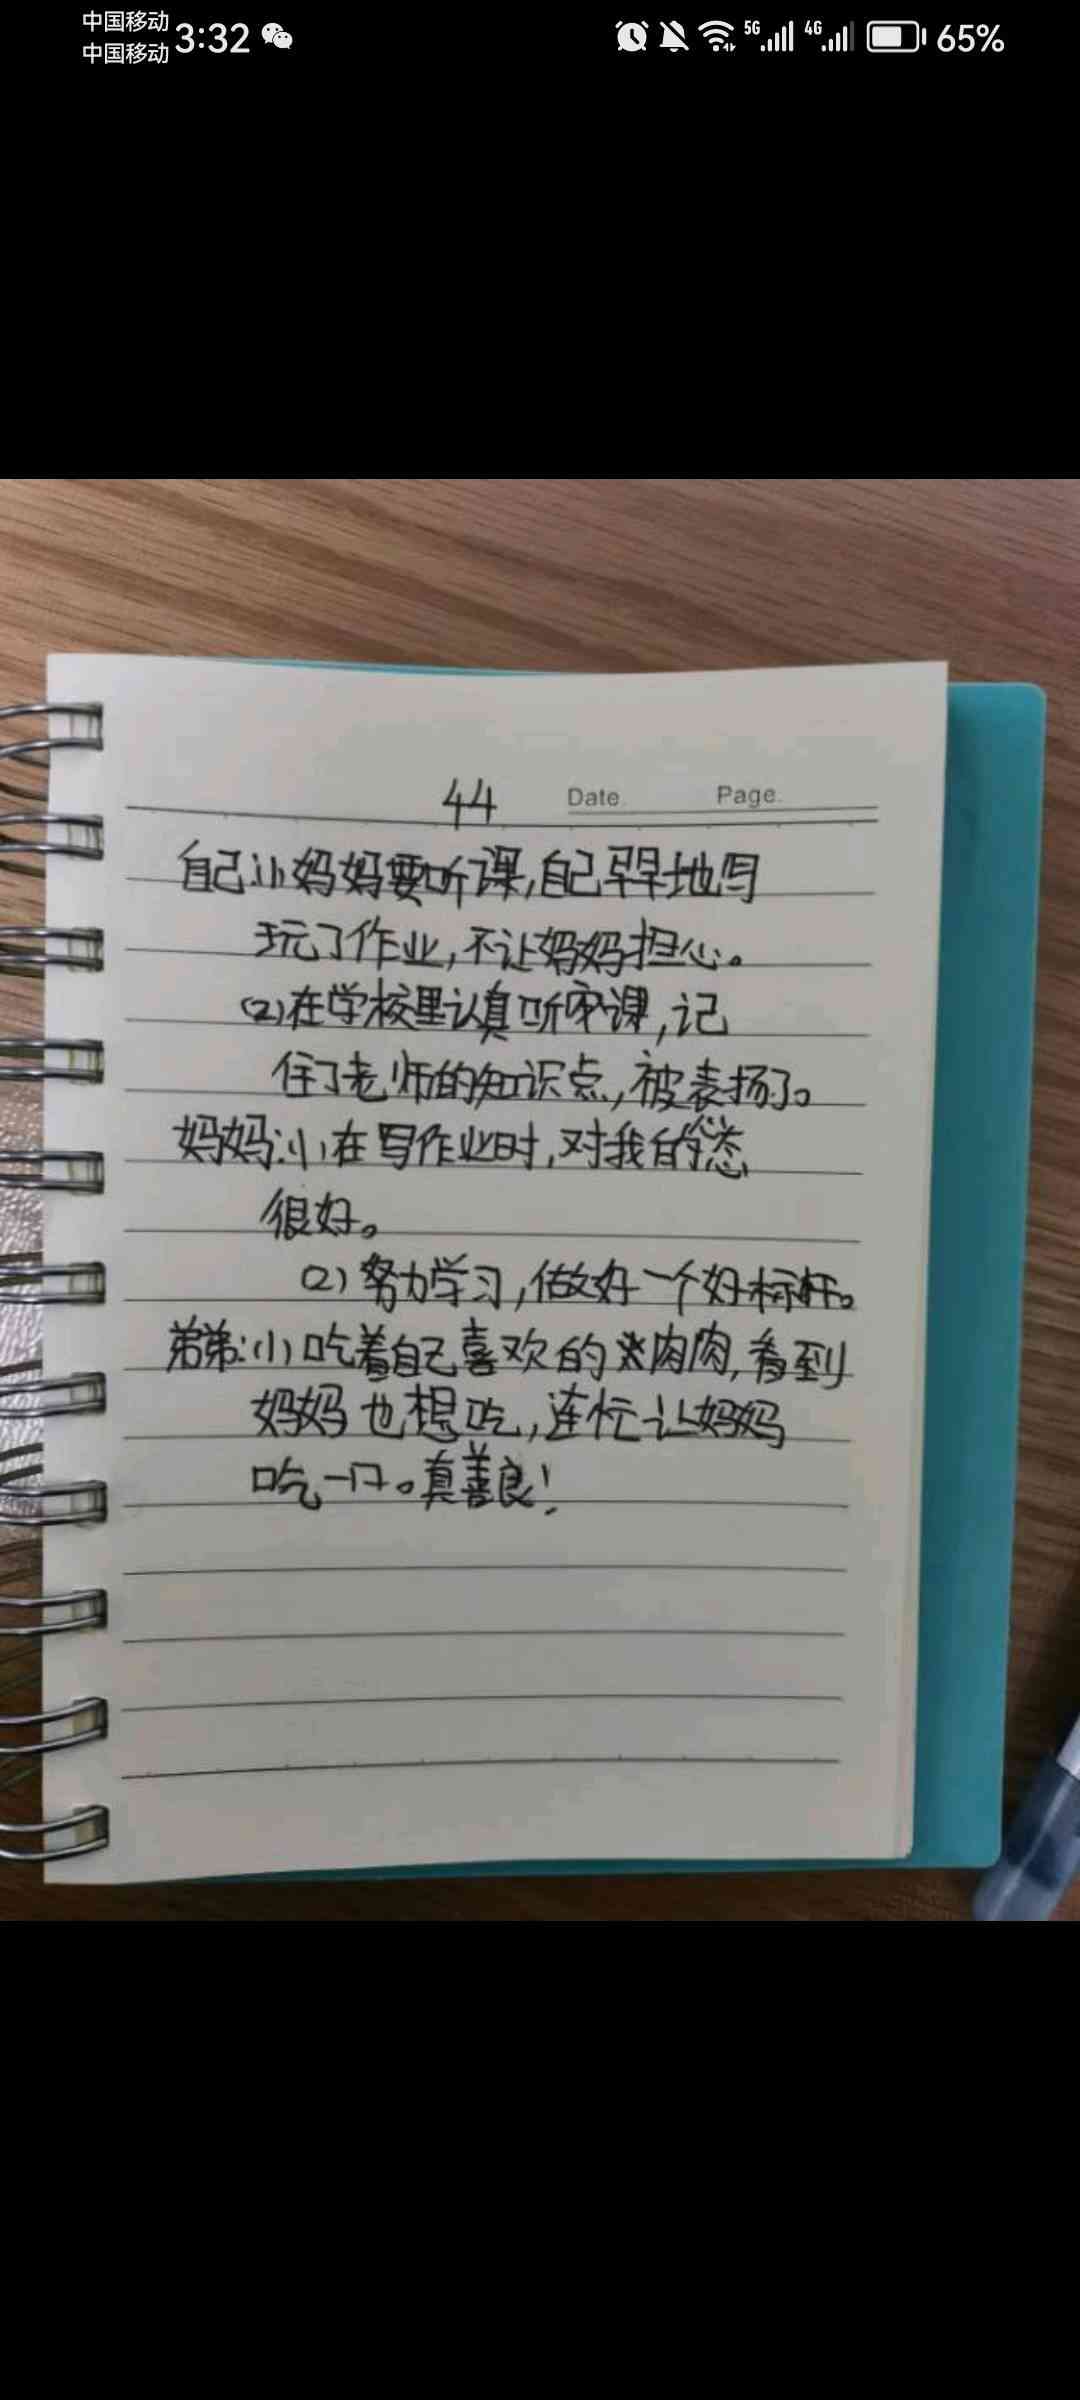 中国移动
中国移动
3:32
5G
4G
65%
44
Date.
Page.
自己:(1)妈妈要听课,自己早早地写
玩了作业,不让妈妈担心。
(2)在学校里认真听课,记
住了老师的知识点,被表扬了。
妈妈:(1)在写作业时,对我的态
很好。
(2)努力学习,做好一个好标杆。
弟弟:(1)吃着自己喜欢的肉肉,看到
妈妈也想吃,连忙让妈妈
吃一口。真善良!